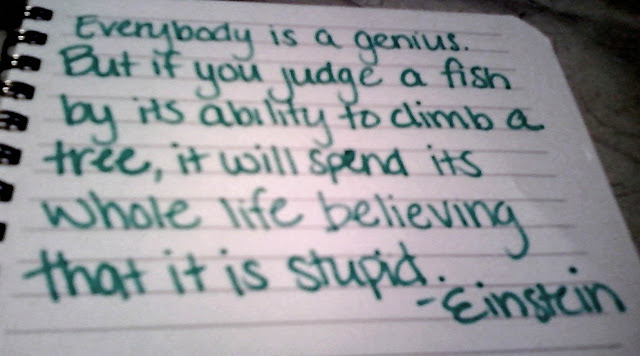 Everybody is a genius.
But if you judge a fish
by its ability to climb a
tree, it will spend its
whole life believing
that it is stupid.
-Einstein